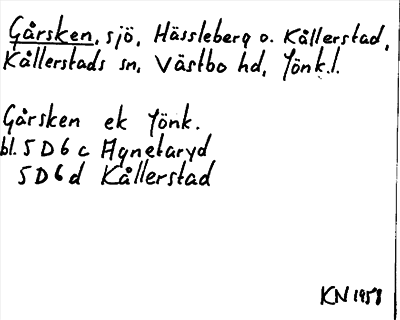 Gårsken, sjö, Hässleberg o. Kållerstad,
Kållerstads sn, Västbo hd, Jönk.l.
Gårsken ek Jönk.
bl. 5 D 6 c Agnetaryd
5 D 6 d Kållerstad
KN 1958